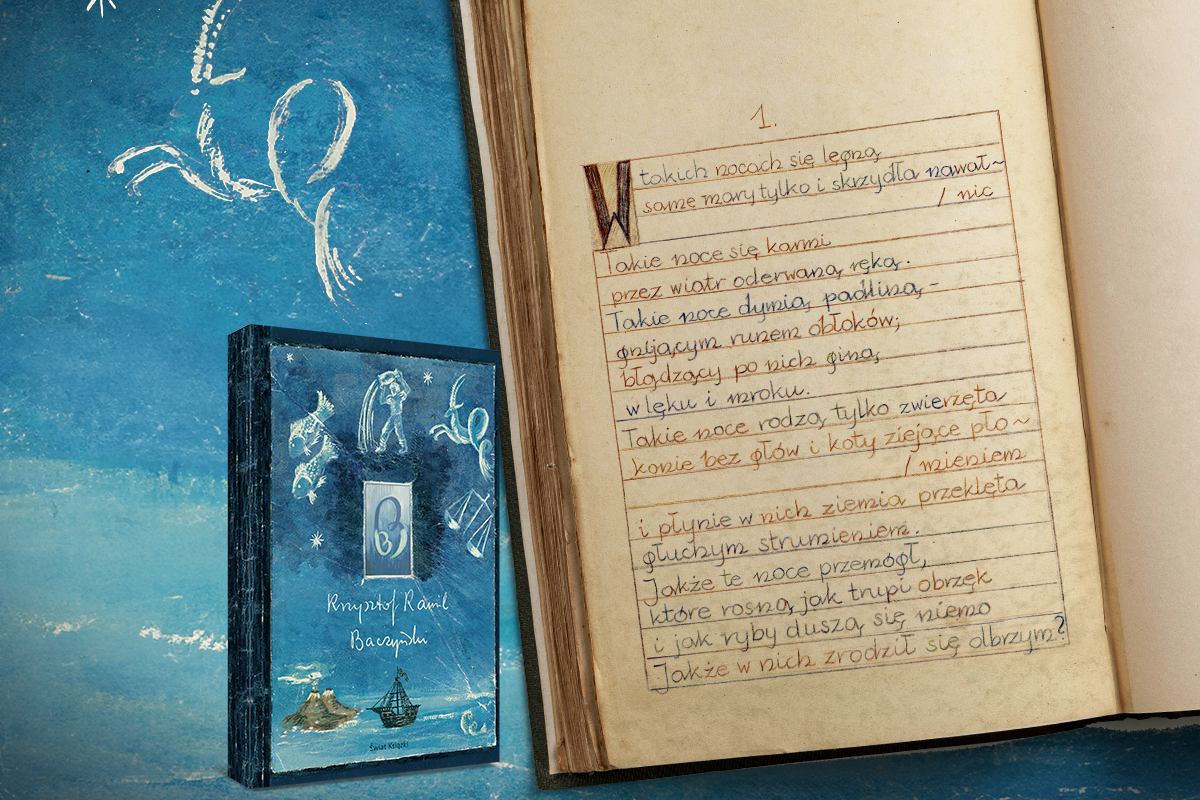 Krzysztof Kamil
Baczyński
Świat Książki
1.
W takich nocach się lęgną
same mary tylko i skrzydła nawał~
/ nic
Takie noce się karmi
przez wiatr oderwaną ręką.
Takie noce dymią padliną, -
gnijącym runem obłoków;
błądzący po nich giną
w lęku i mroku.
Takie noce rodzą tylko zwierzęta
konie bez głów i koty ziejące pło~
/ mieniem
i płynie w nich ziemia przeklęta
głuchym strumieniem.
Jakże te noce przemógł,
które rosną jak trupi obrzęk
i jak ryby duszą się niemo
Jakże w nich zrodził się olbrzym?